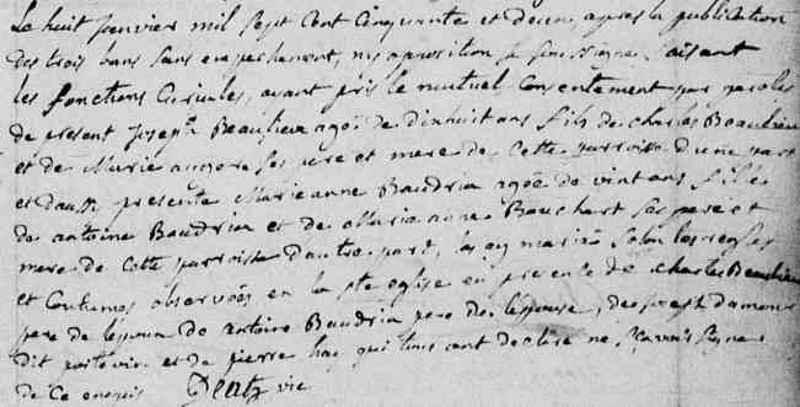 Le huit janvier mil sept cent cinquante et deux, apres la publication
des trois bans sans empechement, ny aposition je soussigne faisant
les fonctions Curiales, ayant pris le mutuel Consentement par paroles
de present joseph Beaulieu agé de dixhuit ans fils de charles Beaulieu
et de Marie ses pere et mere de Cette parroisse d'une part
et aussy presente Marieanne Baudria agée de vint ans fille
de antoine Baudria et de Marie anne Bouchart ses pere et
mere de Cette parroisse d'autre part, les ay mariés selon les
et Coutumes observées en la ste eglise en presence de charles Beaulieu
pere de lepoux de antoine Baudria pere de lepouse, de joseph damour
dit et de pierre hay qui tous ont declaré ne sçavoir signer
de Ce enquis vic